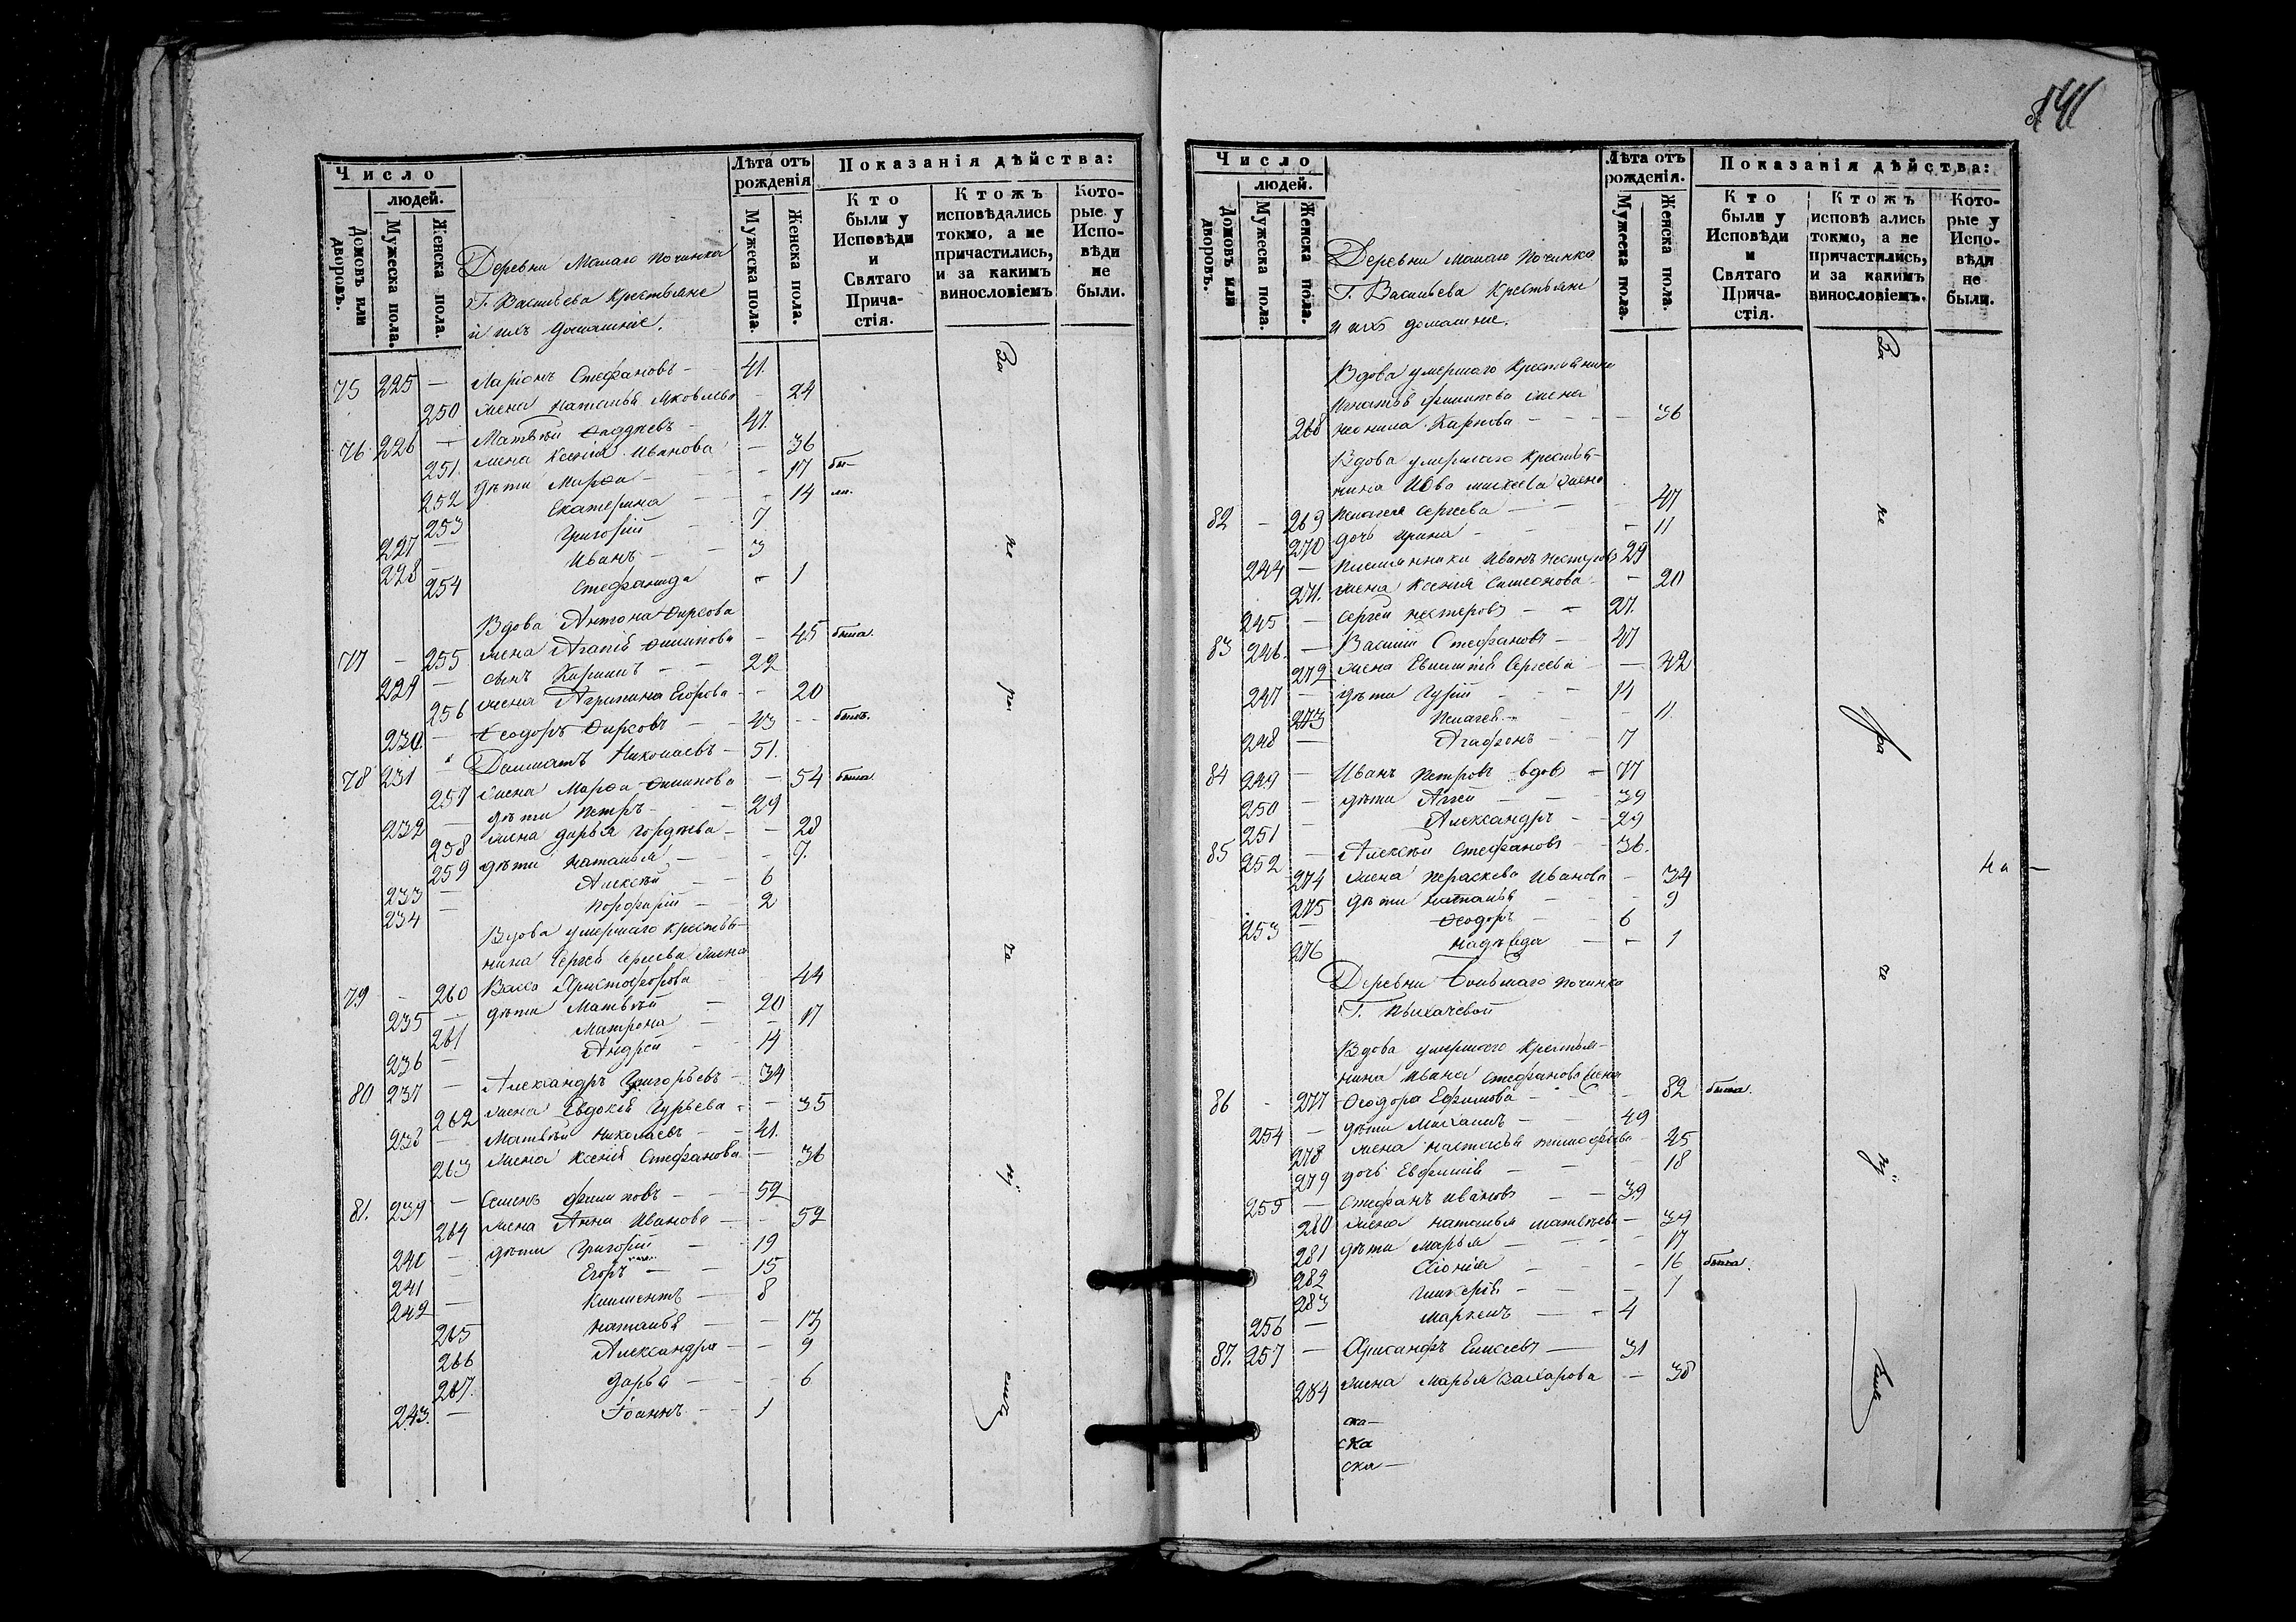 541
Число
людей.
Домовъ или дворовъ.
Мужеска пола.
Женска пола.
Лѣта отъ рожденія
Мужеска пола.
Женска пола.
Показанія дѣйства:
Кто были у Исповѣди и Святаго Причастія.
Ктожъ исповѣдались токмо, а не причастились, и за какимъ винословіемъ
Которые у Исповѣди не были.
Деревни Малаго Починка
Г. Васильева Крестьяне
и ихъ домашніе.
75 225 — Ларіонъ Стефановъ — 41.
250 жена Наталья Яковлева — 24
76 226 — Матвѣй Ѳаддѣевъ — 41.
251. жена Ксенія Иванова — 36
252 дѣти Марѳа — 17 бы-
253 Екатерина — 14 ли.
227 — Григорій — 7
228 — Иванъ — 3
254 Стефанида — 1
Вдова Антона Ѳирсова
77 — 255 жена Агапія Филипова — 45 была.
229 — сынъ Кирилъ — 22
256 жена Агрипина Егорова — 20
230. — Ѳеодоръ Ѳирсовъ — 43 — былъ.
78 231 — Далматъ Николаевъ — 51.
257 жена Марѳа Филипова — 54 была
232 — дѣти Петръ — 29
258 жена Дарья Гордѣева — 28
259 дѣти Наталья — 7.
233 — Алексѣй — 6
234 — Порфирій — 2
Вдова умершаго крестья-
нина Сергѣя Сергѣева жена
79 — 260 Васса Христофорова 44
235 — дѣти Матвѣй — 20
261 Матрона — 17
236 — Андрей — 14
80 237 — Александръ Григорьевъ — 34
262 жена Евдокія Гурьева — 35
238 — Матвѣй Николаевъ — 41.
263 жена Ксенія Стефанова — 36
81. 239 — Семенъ Филиповъ — 52
264 жена Анна Иванова — 52
240 — дѣти Григорій — 19
241 — Егоръ — 15
242 — Климентъ — 8
265 Наталья — 13
266 Александра — 9
267. Дарья — 6
243. — Іоаннъ — 1
За
не
ра
че
ні
емъ
Число
людей.
Домовъ или дворовъ.
Мужеска пола.
Женска пола.
Лѣта отъ рожденія.
Мужеска пола.
Женска пола.
Показанія дѣйства:
Кто были у Исповѣди и Святаго Причастія.
Ктожъ исповѣ ались токмо, а не причастились, и за какимъ винословіемъ.
Которые у Исповѣди не были.
Деревни Малаго Починка
Г. Васильева Крестьяне
и ихъ домашніе.
Вдова умершаго Крестьянина
Игнатья Филипова жена
268 Неонила Карпова — 36
Вдова умершаго Крестья-
нина Іова Михеева жена
82 — 269 Пелагея Сергеева — 47
270 дочь Ирина — 11
244 — Племянники Иванъ Нестеровъ 29
271. жена Ксенія Симеонова — 20
245 — Сергей Нестеровъ — 21.
83 246. — Василій Стефановъ — 47
272 жена Евпитія Сергеева — 42
247 — дѣти Гурій — 14
273 Пелагея — 11.
248 — Агафонъ — 7
84 249 — Иванъ Петровъ вдовъ — 77
250 — дѣти Аггей — 39
251 — Александръ — 29
85 252 — Алексѣй Стефановъ — 36.
274 жена Параскева Иванова — 34
275 дѣти Наталья — 9
253 — Ѳеодоръ — 6
276 Надежда — 1
Деревни Большаго Починка
Г. Пыхачевой
Вдова умершаго Крестья-
нина Ивана Стефанова жена
86 — 277 Ѳеодора Ефимова — 82 была.
254 — дѣти Михаилъ — 49
278 жена Настасья Тимофеева — 45
279 дочь Евфимія — 18
255 — Стефанъ Ивановъ — 39
280 жена Наталья Матвѣева — 39
281 дѣти Марья — 17
282 Хіонія — 16 была.
283 Гликерія — 7
256 — Маркелъ — 4
87. 257 — Александръ Елисеевъ — 31
284 жена Марья Захарова — 38
ска—
ска
ска—
За
не
ра
че
ні
емъ
на —